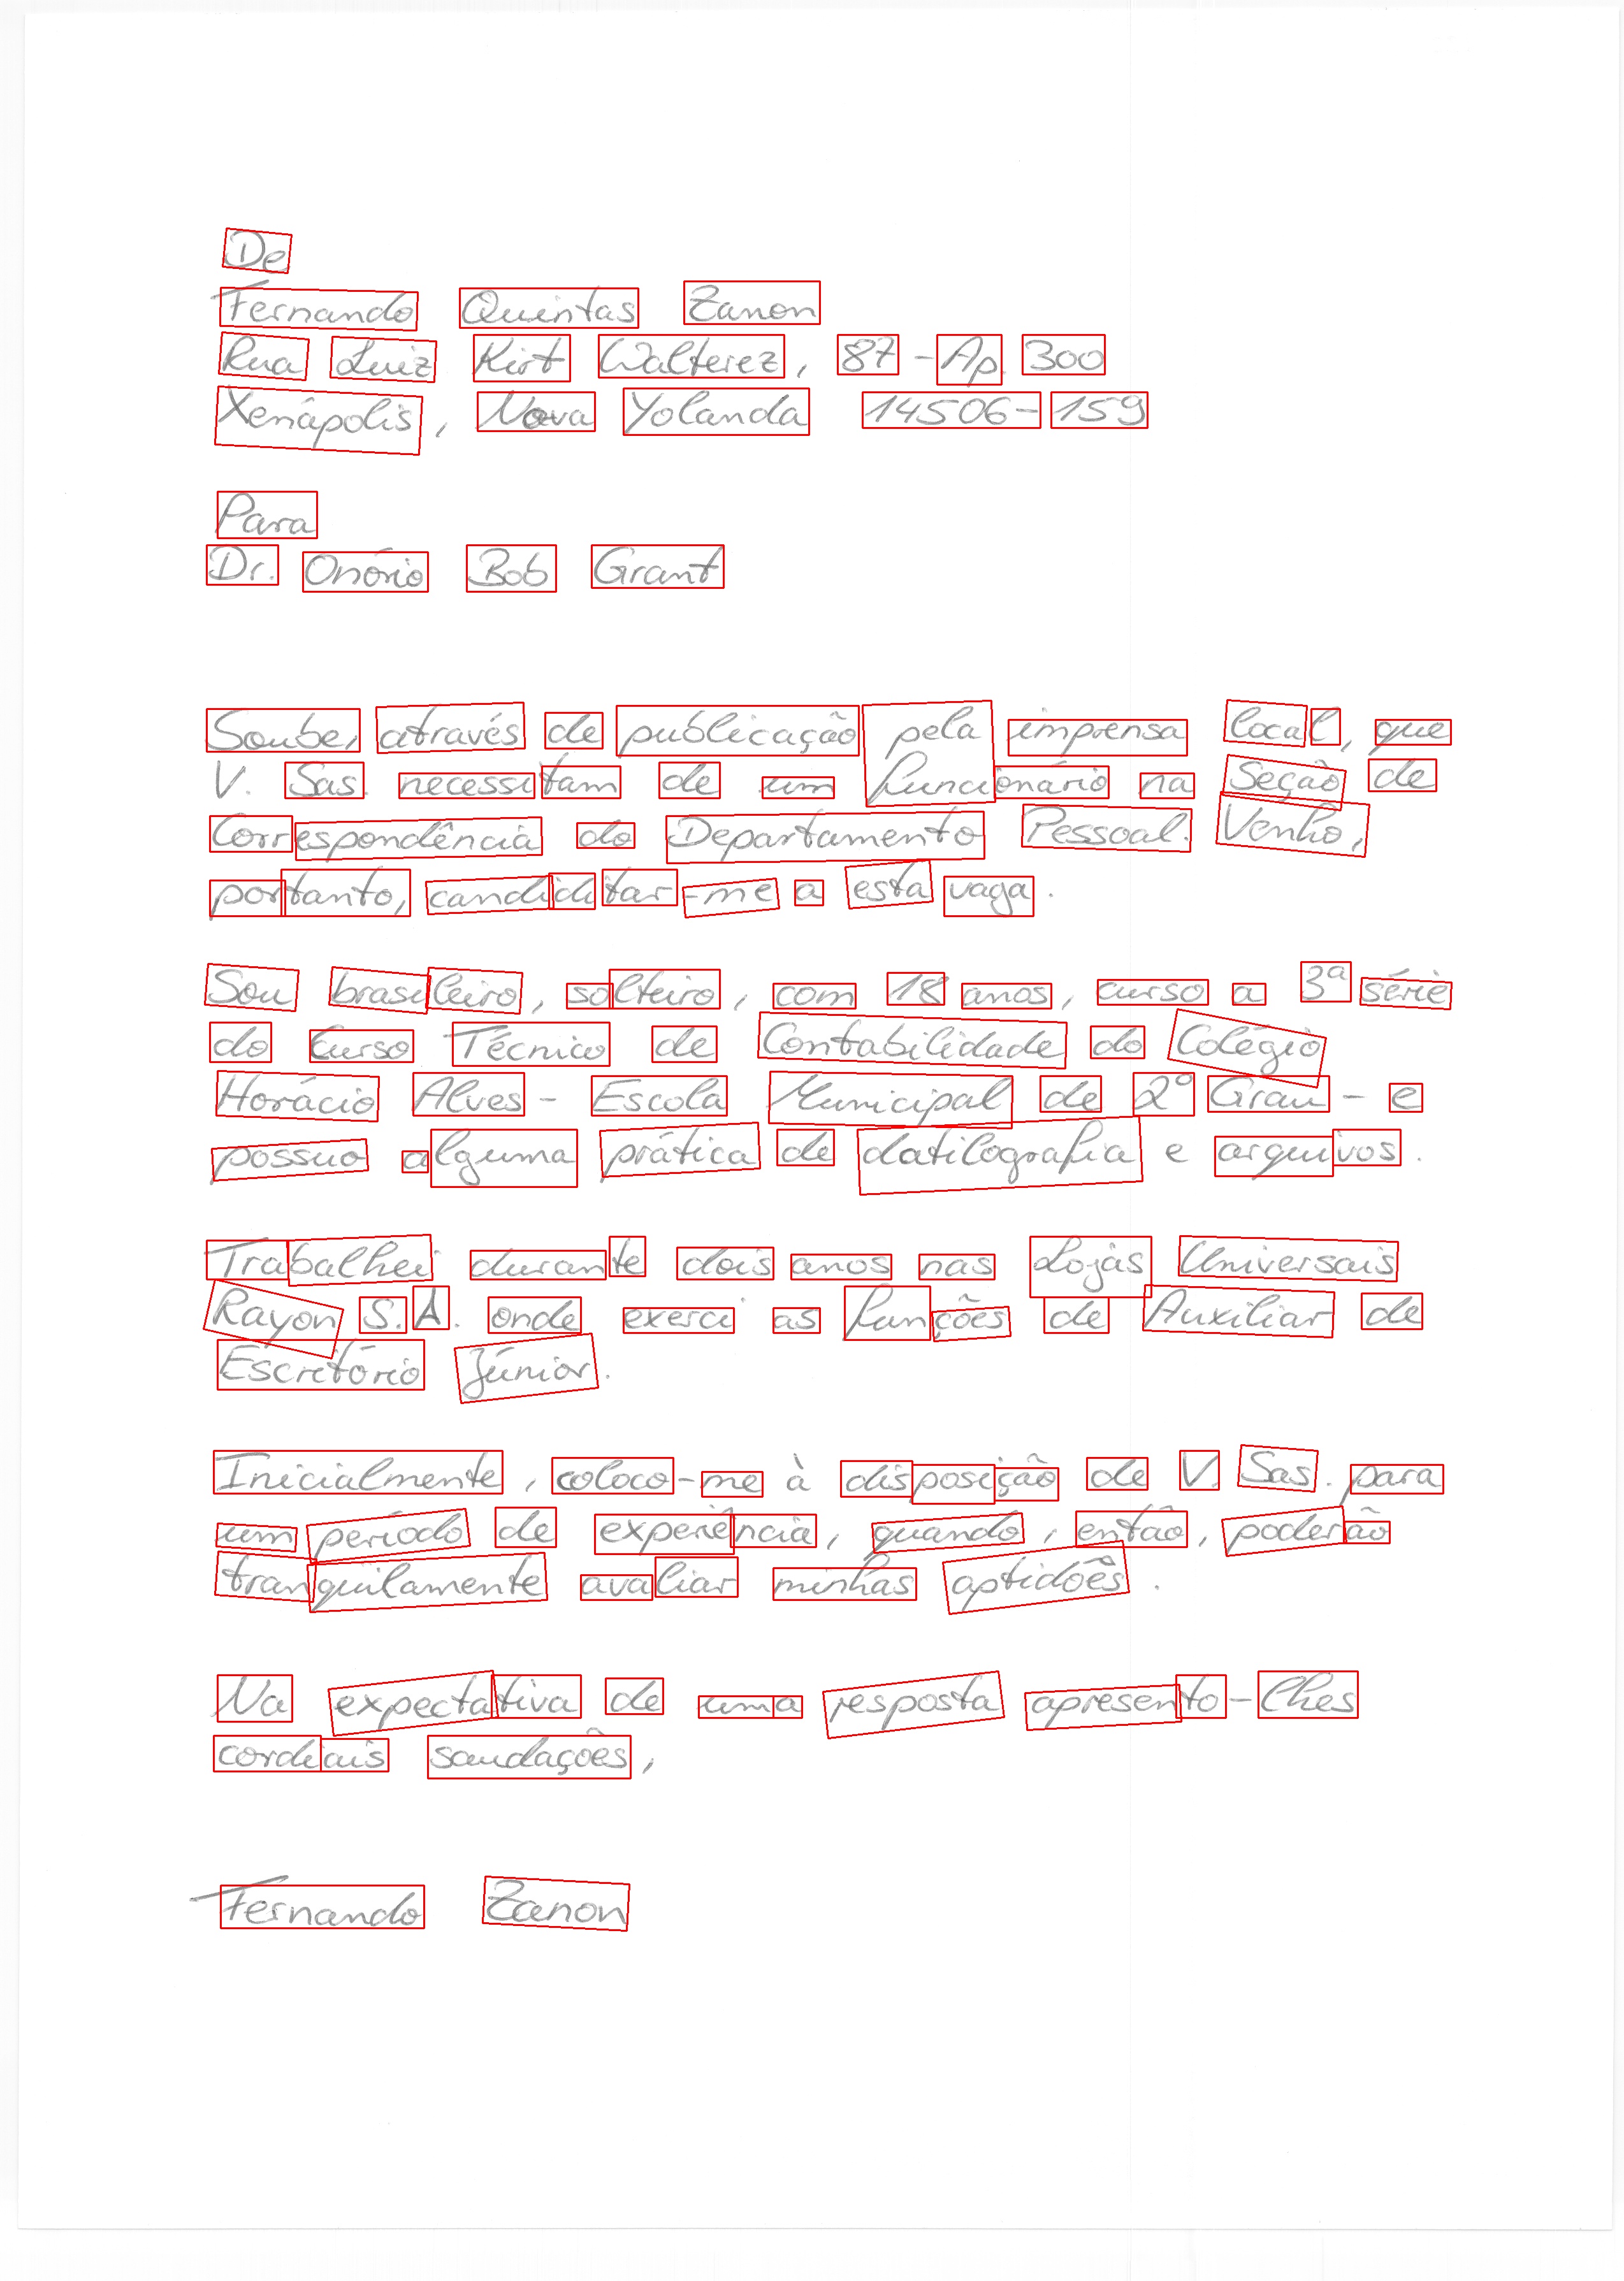 De
Fernando Quintas Zanon
Rua Luiz Kirt Walterez, 87 - Ap. 300
Xenápolis, Nova Yolanda 14506-159
Para
Dr. Onório Bob Grant
Soube, através de publicação pela imprensa local, que
V. Sas. necessitam de um funcionário na Seção de
Correspondência do Departamento Pessoal. Venho,
portanto, candiditar-me a esta vaga.
Sou brasileiro, solteiro, com 18 anos, curso a 3ª série
do Curso Técnico de Contabilidade do Colégio
Horácio Alves - Escola Municipal de 2º Grau - e
possuo alguma prática de datilografia e arquivos.
Trabalhei durante dois anos nas Lojas Universais
Rayon S.A. onde exerci as funções de Auxiliar de
Escritório Júnior.
Inicialmente, coloco-me à disposição de V. Sas. para
um período de experiência, quando, então, poderão
tranquilamente avaliar minhas aptidões.
Na expectativa de uma resposta apresento-lhes
cordiais saudações,
Fernando Zanon